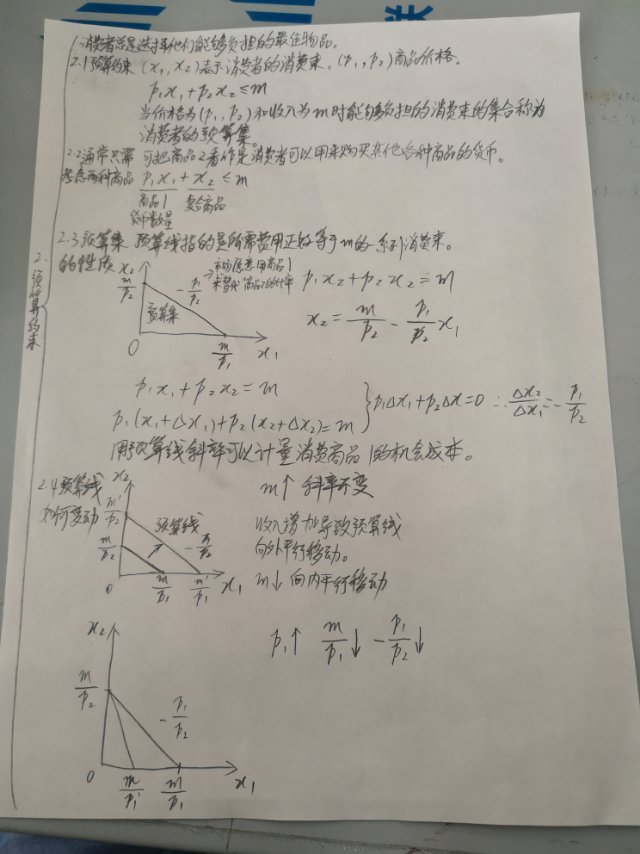 1.消费者总是选择他们能够负担的最佳物品。
2.预算约束
2.1预算约束 (x₁, x₂)表示消费者的消费束。(p₁, p₂)商品价格。
p₁x₁+p₂x₂≤m
当价格为(p₁, p₂)和收入为m时能够负担的消费束的集合称为
消费者的预算集。
2.2通常只需 可把商品2看作是消费者可以用来购买其他各种商品的货币。
考虑两种商品 p₁x₁+x₂≤m
商品1 复合商品
货币数量
2.3预算集 预算线指的是所需费用正好等于m的一系列消费束。
的性质
x₂
m/p₂
预算集
-p₁/p₂
→市场愿意用商品1
来替代商品2的比率
0
m/p₁
x₁
p₁x₂+p₂x₂=m
x₂=m/p₂-p₁/p₂x₁
p₁x₁+p₂x₂=m
p₁(x₁+Δx₁)+p₂(x₂+Δx₂)=m
}p₁Δx₁+p₂Δx=0 ∴Δx₂/Δx₁=-p₁/p₂
用预算线斜率可以计量消费商品1的机会成本。
2.4预算线
如何变动
x₂
m'/p₂
m/p₂
预算线
-p₁/p₂
0
m/p₁
m'/p₁
x₁
m↑ 斜率不变
收入增加导致预算线
向外平行移动。
m↓ 向内平行移动
p₁↑ m/p₁↓ -p₁/p₂↓
x₂
m/p₂
-p₁/p₂
0
m/p₁'
m/p₁
x₁